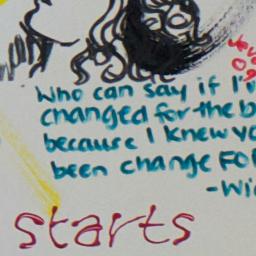 Who can say if I'v
changed for the b
because I knew yo
been change FO
-Wi
starts